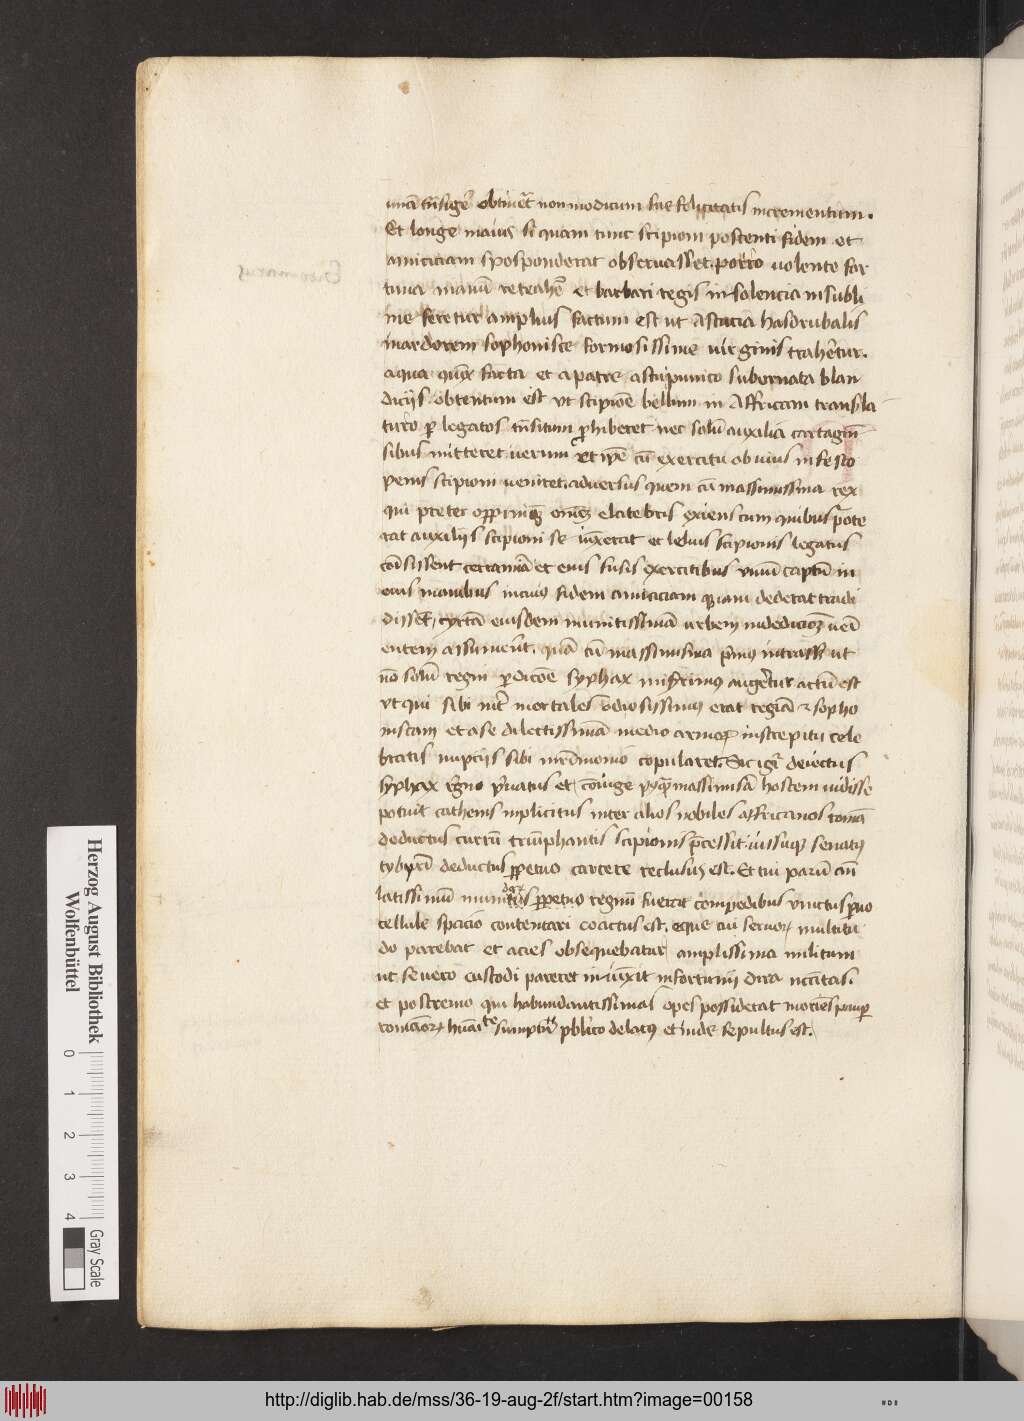 obtineret non modicum sue felicitatis incrementum.
Et longe maius si quam tunc scipioni poscenti fidem et
amiciciam sposponderat observasset. porro volente for
tuna manū retrahere et barbari regis insolencia in subli
me feretur amplius factum est ut astucia hasdrubalis
in ardorem sophonisce formosissime virginis traheretur.
a qua facta et a patre astu punico subornata blan
diciis obtentum est ut scipione bellum in Affricam transla
turo per legatos phiberet nec solū auxilia cartaginē
sibus mitteret verum et ipe cū exercitu obvius infesto
penis scipioni veniret. adversus quem cū massinissa rex
qui preter elatebris exiens cum quibus poterat
auxiliis scipioni se iunxerat et lelius scipionis legatus
cōsissent et eius fusis exercitibus vivū captū in
eius manibus in cuius fidem amiciciam quam dederat tradi
disset, cyrtā eiusdem munitissimā urbem in dedicionē
assumerūt. quā cū massinissa primus intrasset ut
nō solū regni syphax augeretur actū est
ut qui sibi int mortales odiosissimus erat regiā sopho
niscam et a se dilectissimā medio armorum in strepitu cele
bratis nuptiis sibi mrimonio copularet. Sic igr deiectus
syphax regno privatus et coniuge massinissā hostem vidisse
potuit cathenis inplicitus inter alios nobiles affricanos romā
deductus currū triūphantis scipionis precessit. iussuque senatus
tyburi deductus perpetuo carcere reclusus est. Et cui parū an
latissimū perpetuo regnū fuerat compedibus vinctus parvo
cellule spacio contentari coactus est. eque cui servorum multitu
do parebat et acies obsequebatur amplissima militum
ut severo custodi pareret iniunxit infortunii dira
et postremo qui habundantissimas opes possiderat moriens pauper
romanorum sumptu publico delatus et inde sepultus est.
Herzog August Bibliothek
Wolfenbüttel
0 1 2 3 4
Gray Scale
http://diglib.hab.de/mss/36-19-aug-2f/start.htm?image=00158